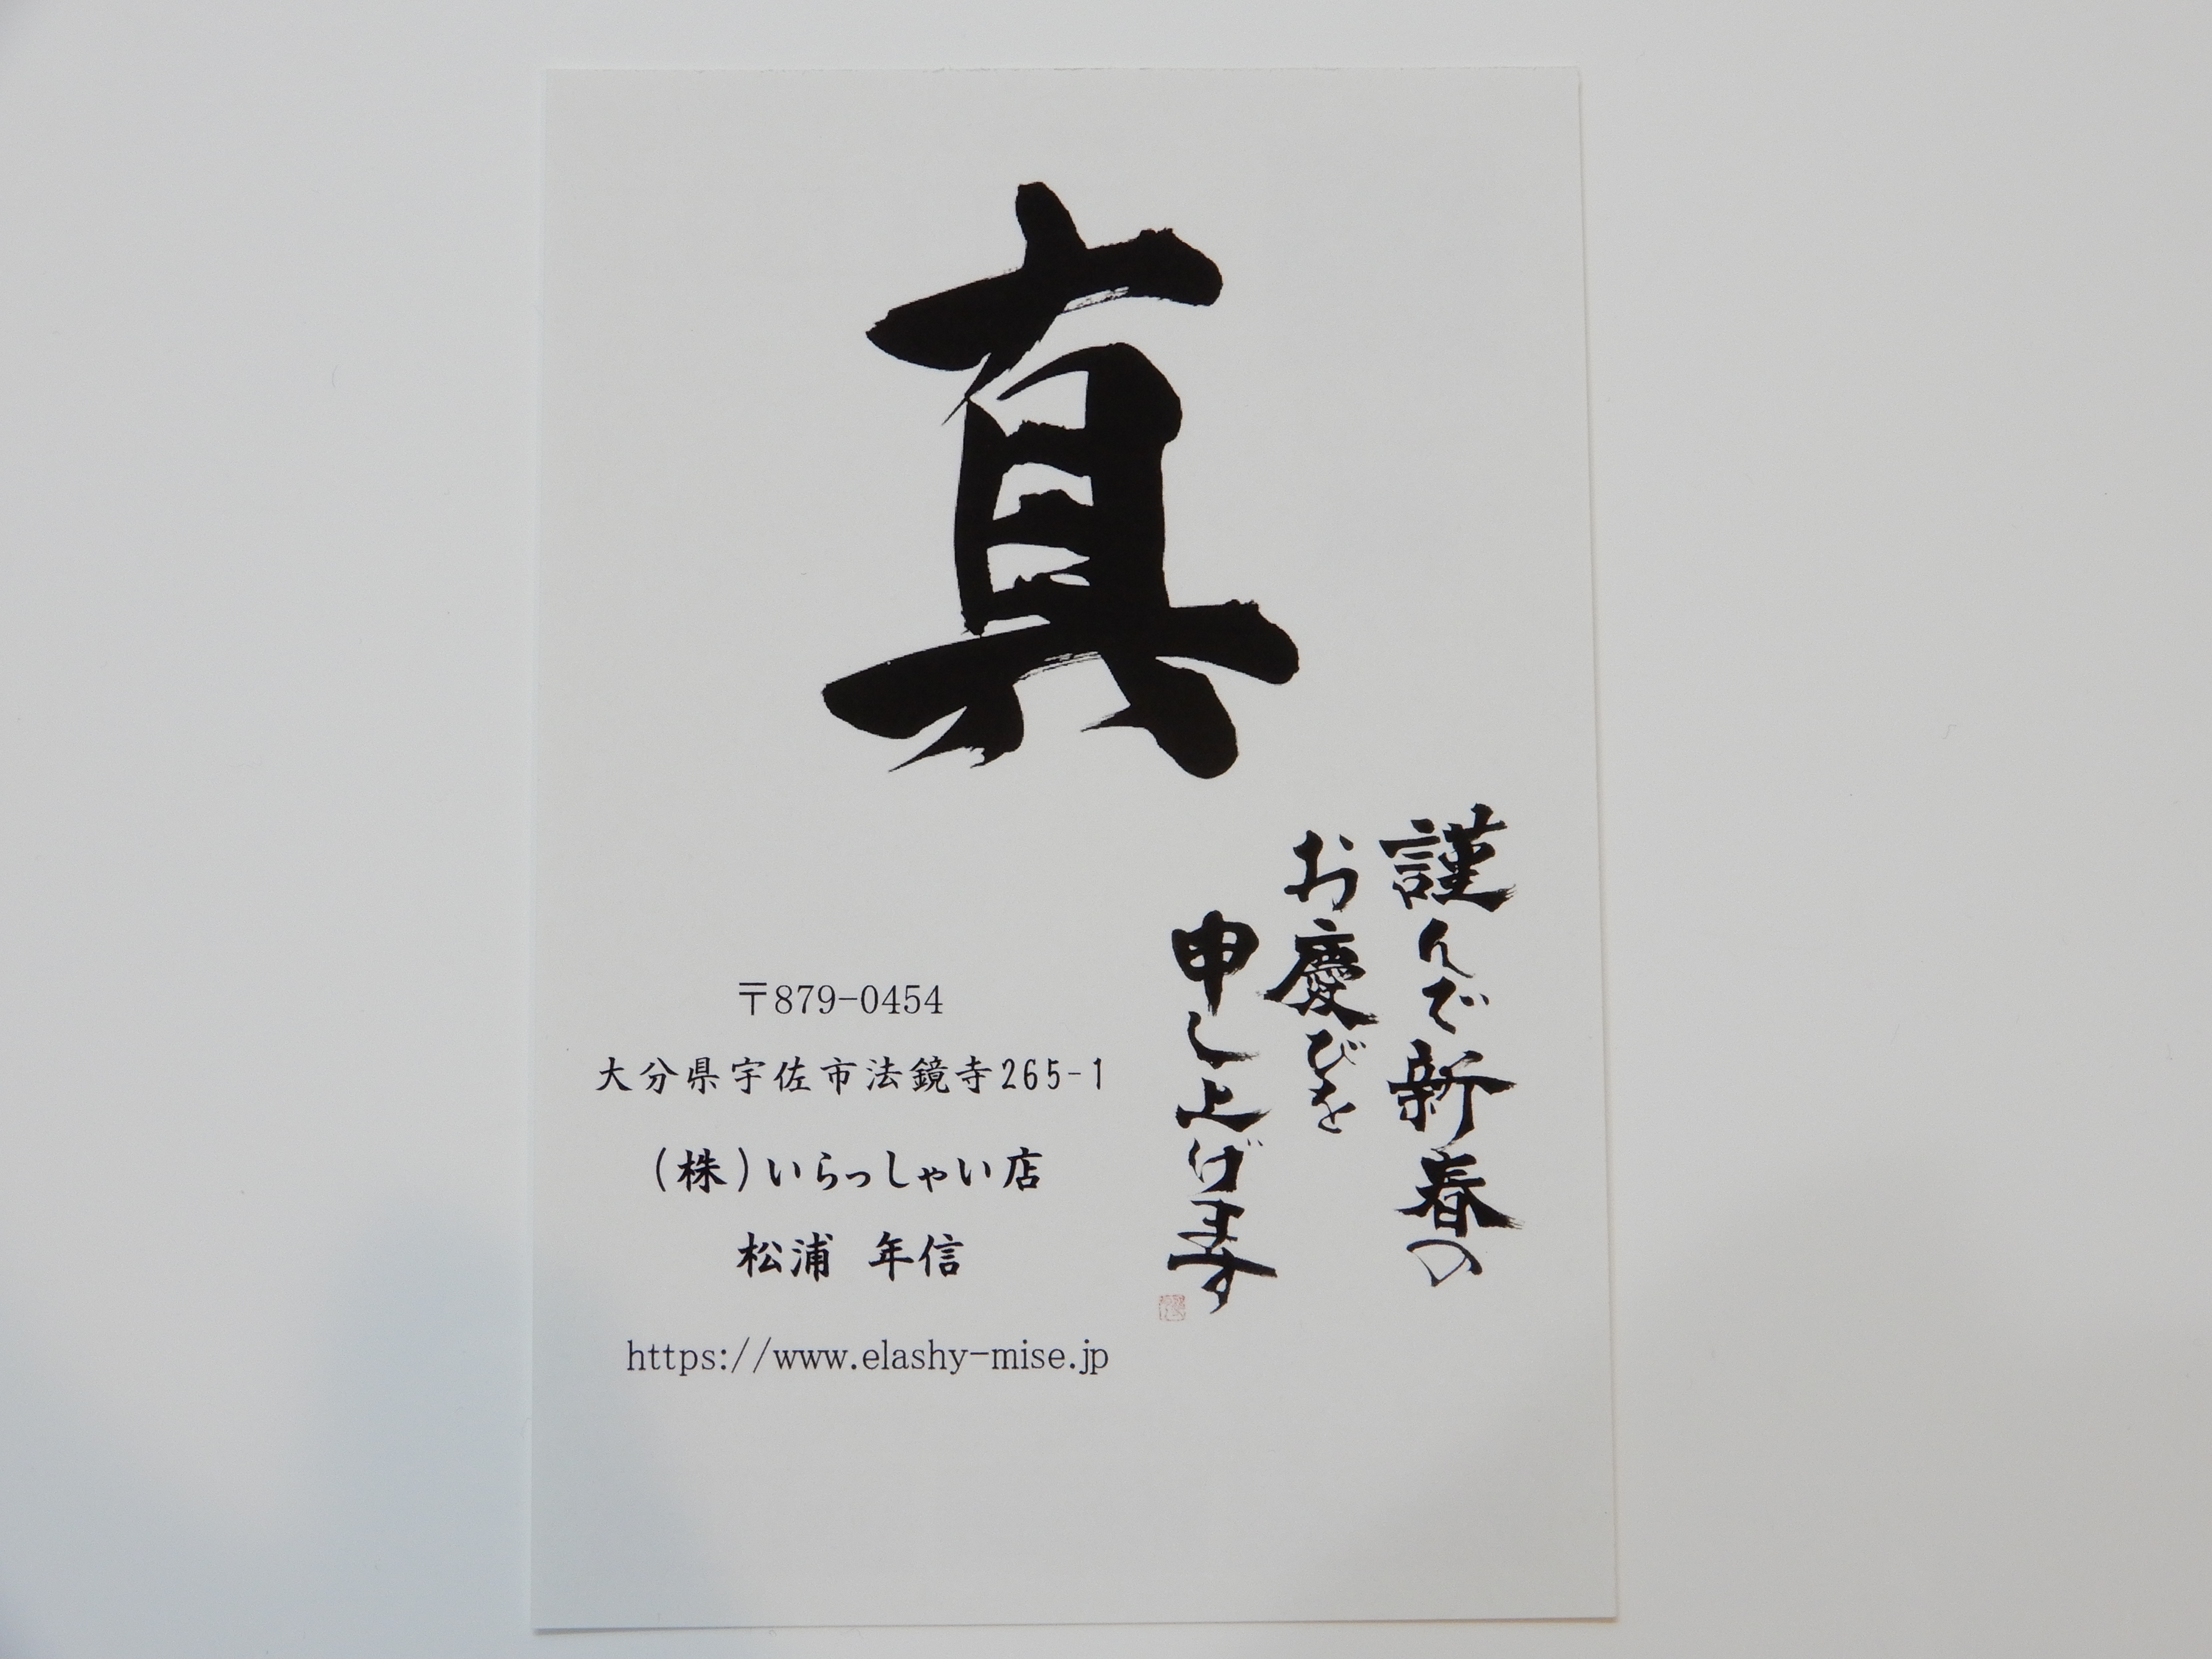 真
謹んで新春の
お慶びを
申し上げます
〒879-0454
大分県宇佐市法鏡寺265-1
(株)いらっしゃい店
松浦 年信
https://www.elashy-mise.jp